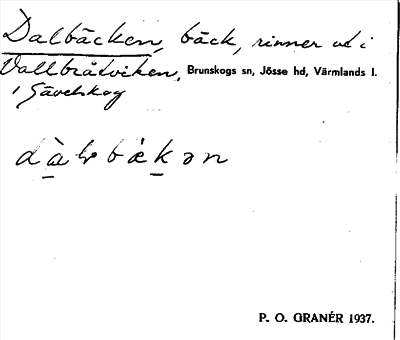 Dalbäcken, bäck, rinner ut i
Vallbråtviken, Brunskogs sn, Jösse hd, Värmlands l.
i Gävelskog
dàlbækən
P. O. GRANÉR 1937.